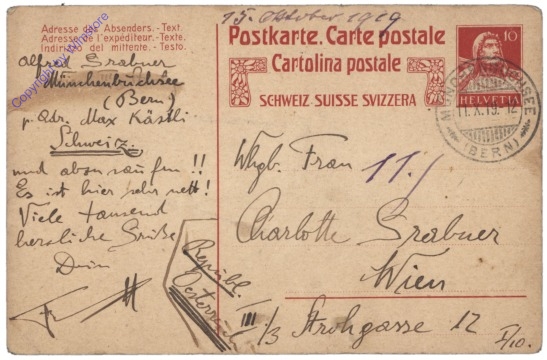 15. Oktober 1919
Adresse des Absenders.-Text.
Adresse de l'expéditeur.-Texte.
Indirizzo del mittente.-Testo.
Postkarte. Carte postale
Cartolina postale
SCHWEIZ SUISSE SVIZZERA
10
HELVETIA
MÜNCHENBUCHSEE
11.X.19.-12
(BERN)
Copyright by Wnstore
Alfred Grabner
Münchenbuchsee
(Bern)
p. Adr. Max Kästli
Schweiz.
und
!!
Es ist hier sehr nett!
Viele tausend
herzliche Grüße
Dein
Wlgb. Frau
Charlotte Grabner
Wien
III/3 Strohgasse 12
Republ.
Österreich